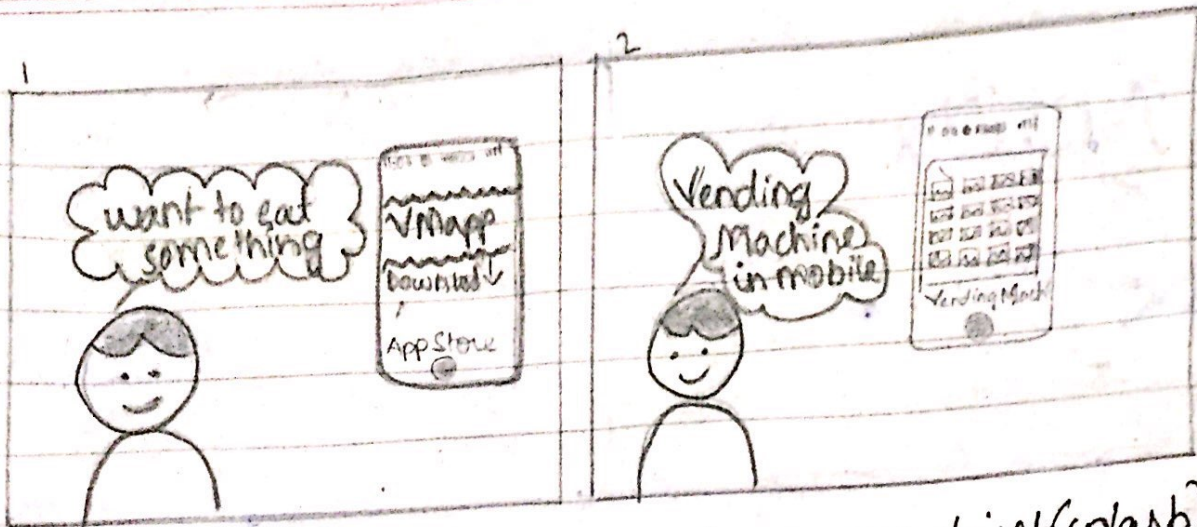 1
want to eat
something
VMapp
Download↓
App Store
2
Vending
Machine
in mobile
Vending Mach